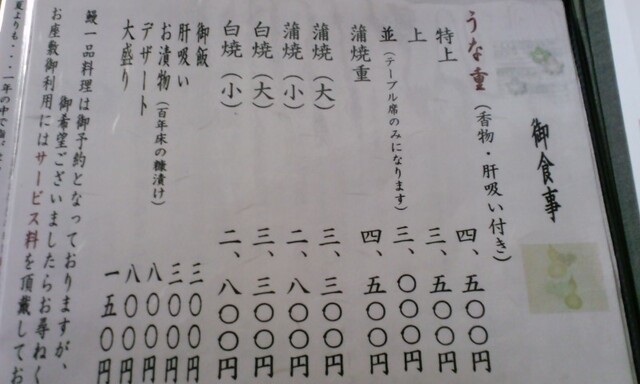 御食事
うな重（香物・肝吸い付き）
特上 四、五〇〇円
上 三、五〇〇円
並（テーブル席のみになります） 三、〇〇〇円
蒲焼重 四、五〇〇円
蒲焼（大） 三、三〇〇円
蒲焼（小） 二、八〇〇円
白焼（大） 三、三〇〇円
白焼（小） 二、八〇〇円
御飯 三〇〇円
肝吸い 三〇〇円
お漬物（百年床の糠漬け） 八〇〇円
デザート 八〇〇円
大盛り 一五〇円
鰻一品料理は御予約となっておりますが、
御希望ございましたらお尋ねく
お座敷御利用にはサービス料を頂戴してお
夏よりも・・・一年の中で